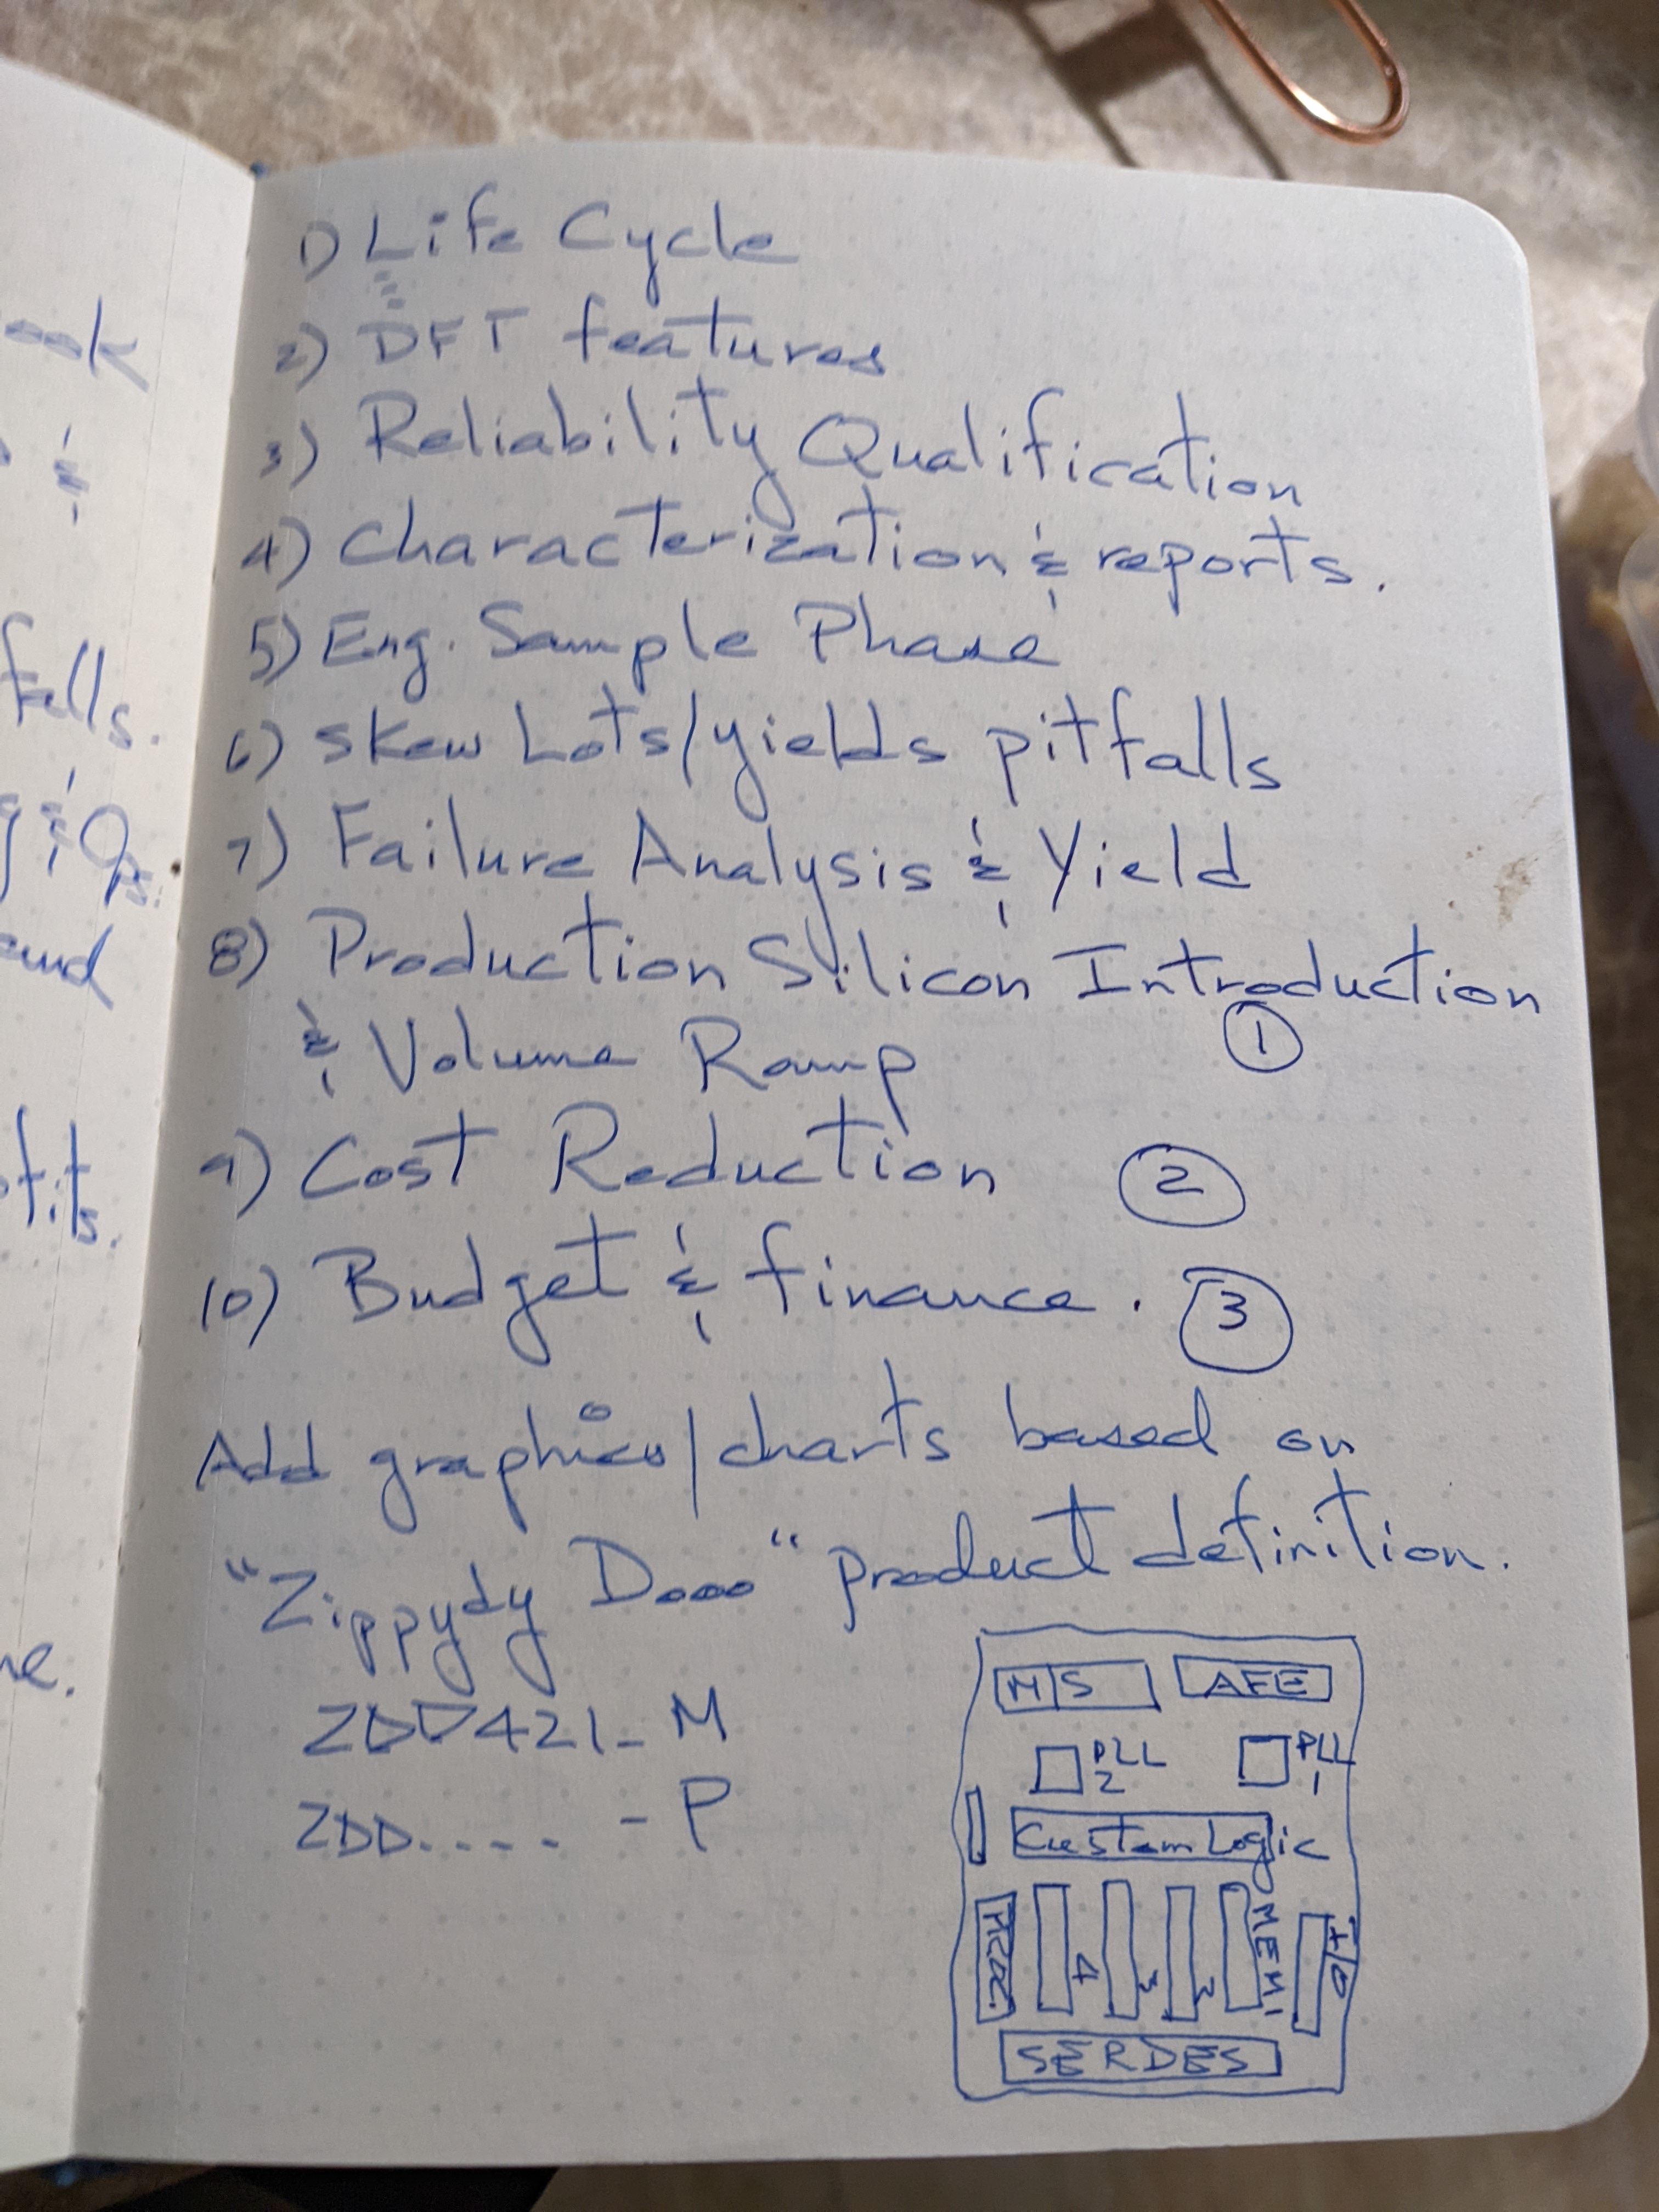 ook
&
falls.
g & Ops.
and
ofits.
ne.
1) Life Cycle
2) DFT features
3) Reliability Qualification
4) Characterization & reports.
5) Eng. Sample Phase
6) Skew Lots/yields pitfalls
7) Failure Analysis & Yield
8) Production Silicon Introduction
& Volume Ramp 1
9) Cost Reduction 2
10) Budget & finance. 3
Add graphics/charts based on
"Zippydy Dooo" product definition.
ZDD421-M
ZDD.... - P
M/S AFE
PLL 2 PLL 1
Custom Logic
PROC. 4 3 2 MEM 1 I/O
SERDES